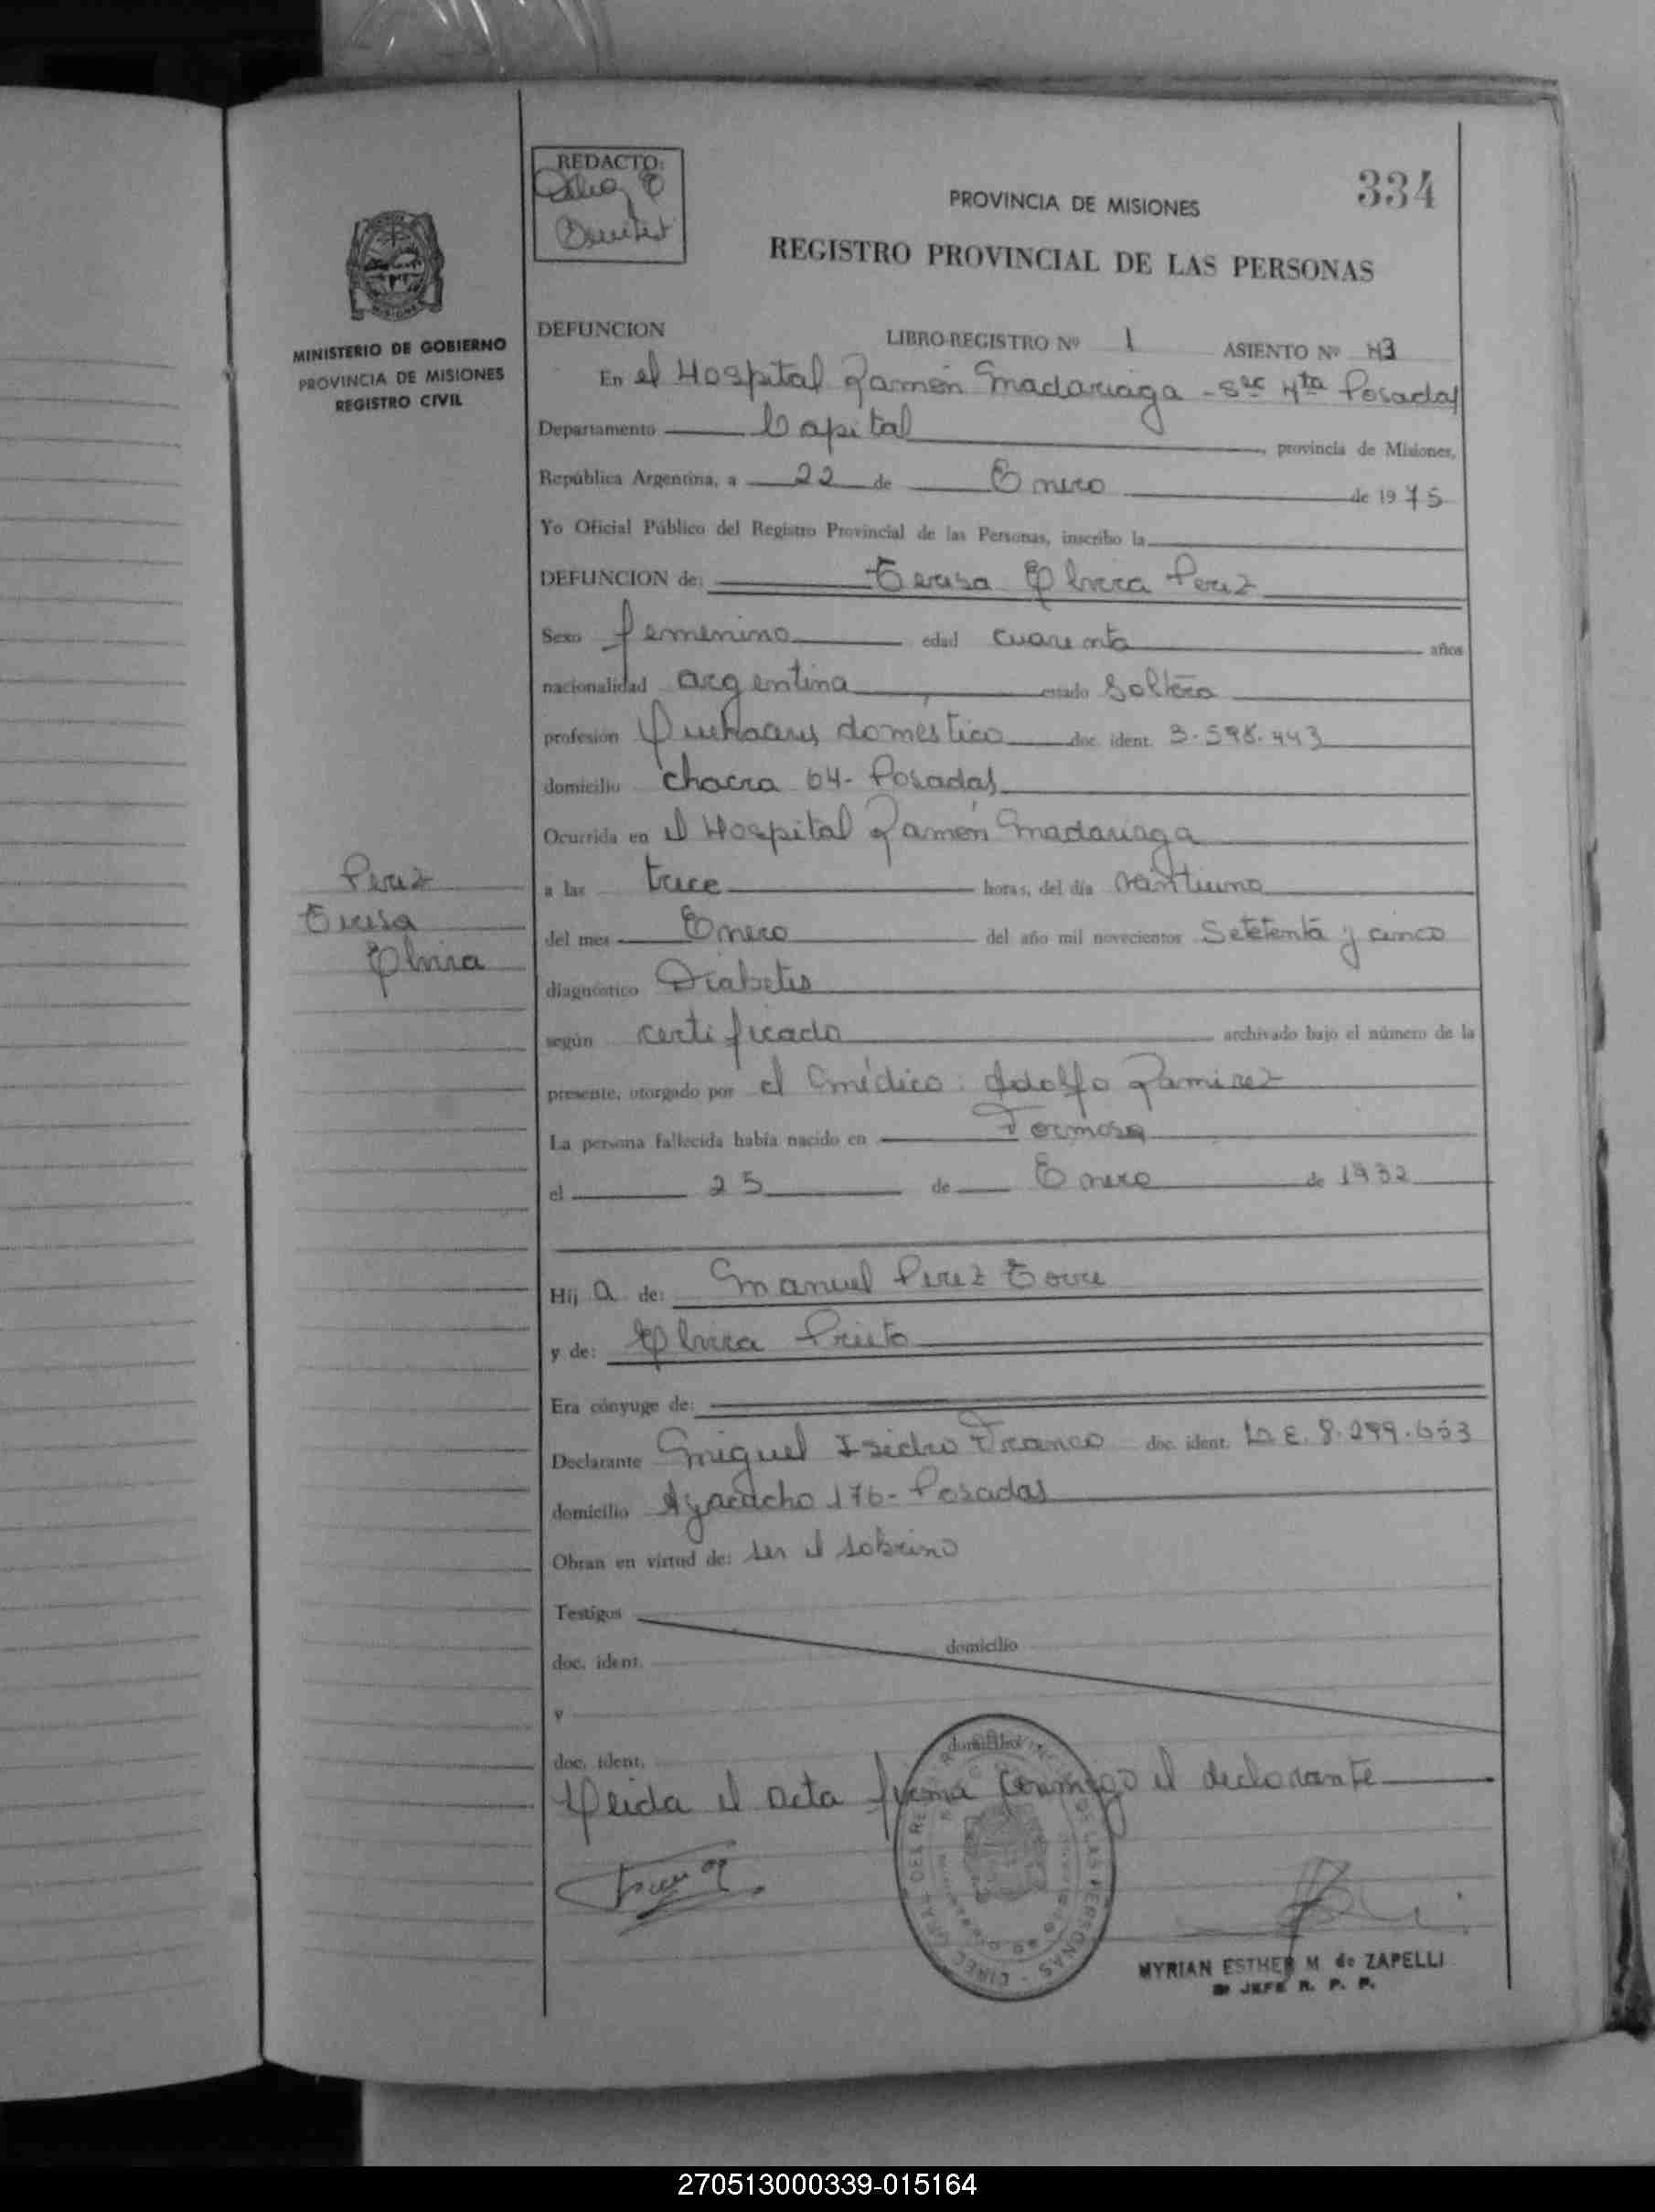 REDACTO:
334
PROVINCIA DE MISIONES
REGISTRO PROVINCIAL DE LAS PERSONAS
MINISTERIO DE GOBIERNO
PROVINCIA DE MISIONES
REGISTRO CIVIL
DEFUNCION LIBRO-REGISTRO Nº 1 ASIENTO Nº 43
En el Hospital Ramón Madariaga - Sec 4ta Posadas
Departamento Capital, provincia de Misiones,
República Argentina, a 22 de Enero de 1975
Yo Oficial Público del Registro Provincial de las Personas, inscribo la
DEFUNCION de: Teresa Elvira Perez
Sexo femenino edad cuarenta años
nacionalidad argentina, estado Soltera
profesión Quehaceres doméstico doc. ident. 3.598.443
domicilio chacra 64- Posadas
Ocurrida en el Hospital Ramón Madariaga
a las trece horas, del día veintiuno
del mes Enero del año mil novecientos Setetenta y cinco
diagnóstico Diabetes
según certificado archivado bajo el número de la
presente, otorgado por el médico: Adolfo Ramirez
La persona fallecida había nacido en Formosa
el 25 de Enero de 1932
Perez
Teresa
Elvira
Hij a de: Manuel Perez Torre
y de: Elvira Prieto
Era cónyuge de:
Declarante Miguel Isidro Franco doc. ident. L.E. 8.299.653
domicilio Ayacucho 176- Posadas
Obran en virtud de: ser el sobrino
Testigos
doc. ident. domicilio
y
doc. ident. domicilio
Leida el acta firma conmigo el declarante
MYRIAN ESTHER M. de ZAPELLI
JEFE R. P. P.
270513000339-015164